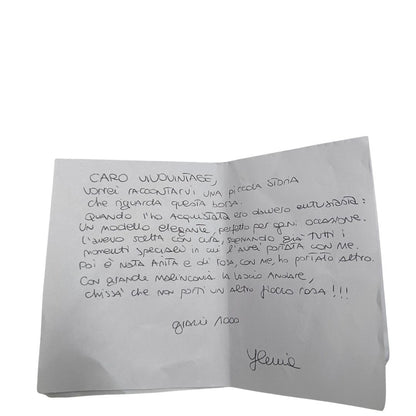 CARO VIVOVINTAGE,
VORREI RACCONTARVI UNA PICCOLA STORIA
che riguarda questa borsa.
Quando l'ho acquistata ero davvero entusiasta:
Un modello elegante, perfetto per ogni occasione.
L'avevo scelta con cura, sognando già TUTTI i
momenti speciali in cui l'avrei portata con me.
Poi è nata Anita e di rosa, con me, ho portato altro.
Con grande malinconia la lascio andare,
chissà che non porti un altro fiocco rosa!!!
grazie 1000
Ylenia